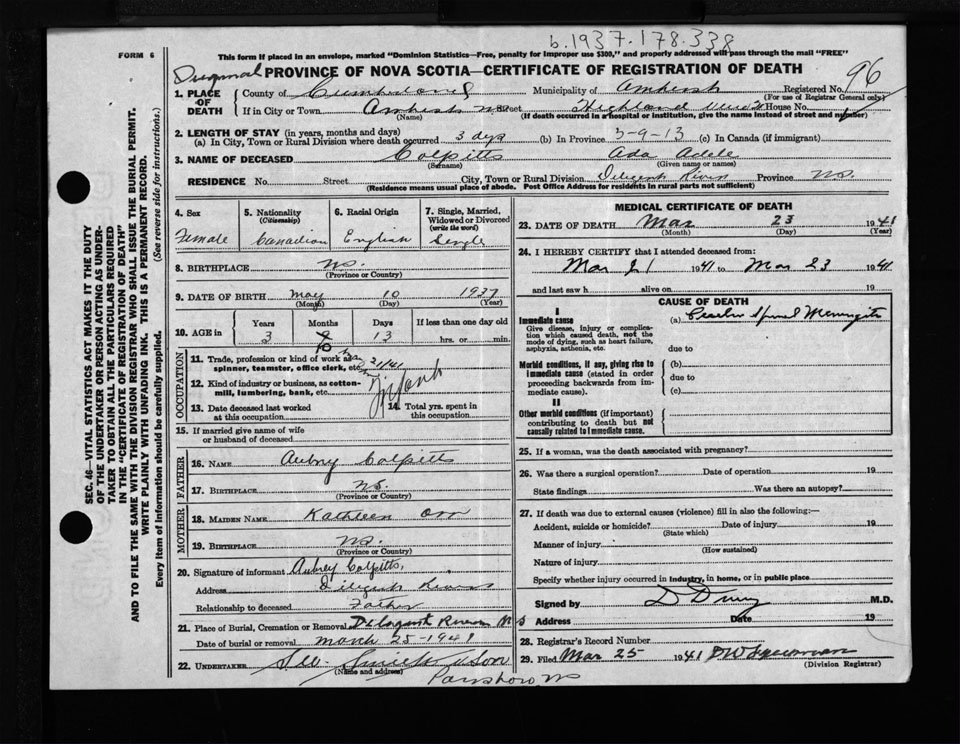 b.1937.178.338
FORM 6
This form if placed in an envelope, marked "Dominion Statistics—Free, penalty for improper use $300," and properly addressed will pass through the mail "FREE"
PROVINCE OF NOVA SCOTIA—CERTIFICATE OF REGISTRATION OF DEATH
96
1. PLACE OF DEATH County of Cumberland Municipality of Amherst Registered No.
(For use of Registrar General only)
If in City or Town Amherst NS Street Highland View House No.
(Name) (If death occurred in a hospital or institution, give the name instead of street and number)
2. LENGTH OF STAY (in years, months and days)
(a) In City, Town or Rural Division where death occurred 3 days (b) In Province 3-9-13 (c) In Canada (if immigrant)
3. NAME OF DECEASED Colpitts Ada Adele
(Surname) (Given name or names)
RESIDENCE No. Street City, Town or Rural Division Diligent River Province NS.
(Residence means usual place of abode. Post Office Address for residents in rural parts not sufficient)
SEC. 46—VITAL STATISTICS ACT MAKES IT THE DUTY
OF THE UNDERTAKER OR PERSON ACTING AS UNDER-
TAKER TO OBTAIN ALL THE PARTICULARS REQUIRED
IN THE "CERTIFICATE OF REGISTRATION OF DEATH"
AND TO FILE THE SAME WITH THE DIVISION REGISTRAR WHO SHALL ISSUE THE BURIAL PERMIT.
WRITE PLAINLY WITH UNFADING INK. THIS IS A PERMANENT RECORD.
Every item of information should be carefully supplied. (See reverse side for instructions.)
4. Sex Female
5. Nationality (Citizenship) Canadian
6. Racial Origin English
7. Single, Married, Widowed or Divorced (write the word) Single
8. BIRTHPLACE NS.
(Province or Country)
9. DATE OF BIRTH May 10 1937
(Month) (Day) (Year)
10. AGE in Years Months Days If less than one day old
3 10 13 hrs. or min.
OCCUPATION
11. Trade, profession or kind of work as spinner, teamster, office clerk, etc.
12. Kind of industry or business, as cotton-mill, lumbering, bank, etc.
Infant
13. Date deceased last worked at this occupation
14. Total yrs. spent in this occupation
15. If married give name of wife or husband of deceased
FATHER
16. NAME Aubrey Colpitts
17. BIRTHPLACE NS.
(Province or Country)
MOTHER
18. MAIDEN NAME Kathleen Orr
19. BIRTHPLACE NS.
(Province or Country)
20. Signature of informant Aubrey Colpitts,
Address Diligent River
Relationship to deceased Father
21. Place of Burial, Cremation or Removal Diligent River N S
Date of burial or removal March 25-1941
22. UNDERTAKER Smith & Son
(Name and address)
Parrsboro NS
MEDICAL CERTIFICATE OF DEATH
23. DATE OF DEATH Mar 23 1941
(Month) (Day) (Year)
24. I HEREBY CERTIFY that I attended deceased from:
Mar 21 1941 to Mar 23 1941
and last saw h alive on 19
CAUSE OF DEATH
I
Immediate cause (a) Cerebro Spinal Meningitis
Give disease, injury or complication which caused death, not the mode of dying, such as heart failure, asphyxia, asthenia, etc.
due to
Morbid conditions, if any, giving rise to immediate cause (stated in order proceeding backwards from immediate cause).
(b)
due to
(c)
II
Other morbid conditions (if important) contributing to death but not causally related to immediate cause.
25. If a woman, was the death associated with pregnancy?
26. Was there a surgical operation? Date of operation 19
State findings Was there an autopsy?
27. If death was due to external causes (violence) fill in also the following:—
Accident, suicide or homicide? Date of injury 19
(State which)
Manner of injury
(How sustained)
Nature of injury
Specify whether injury occurred in industry, in home, or in public place
Signed by M.D.
Address Date 19
28. Registrar's Record Number
29. Filed Mar 25 1941
(Division Registrar)